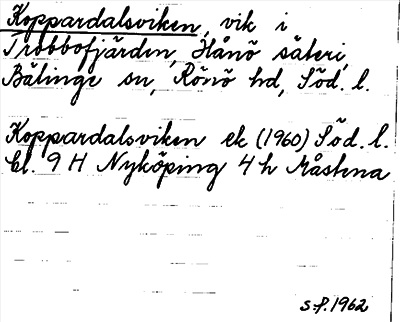 Koppardalsviken, vik i
Trobbofjärden, Hånö säteri,
Bälinge sn, Rönö hd, Söd. l.
Koppardalsviken ek (1960) Söd. l.
bl. 9 H Nyköping 4 h Måstena
S.P. 1962